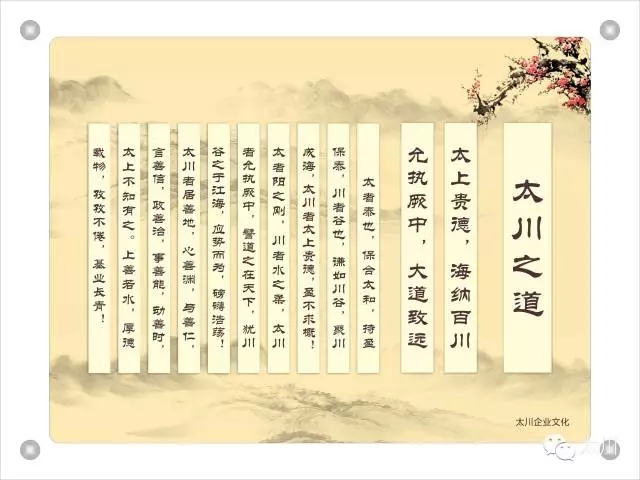 太川之道
太上贵德，海纳百川
允执厥中，大道致远
太者泰也，保合太和，持盈
保泰，川者谷也，谦如川谷，聚川
成海，太川者太上贵德，盈不求概！
太者阳之刚，川者水之柔，太川
者允执厥中，譬道之在天下，犹川
谷之于江海，应势而为，磅礴浩荡！
太川者居善地，心善渊，与善仁，
言善信，政善治，事善能，动善时，
太上不知有之。上善若水，厚德
载物，孜孜不倦，基业长青！
太川企业文化